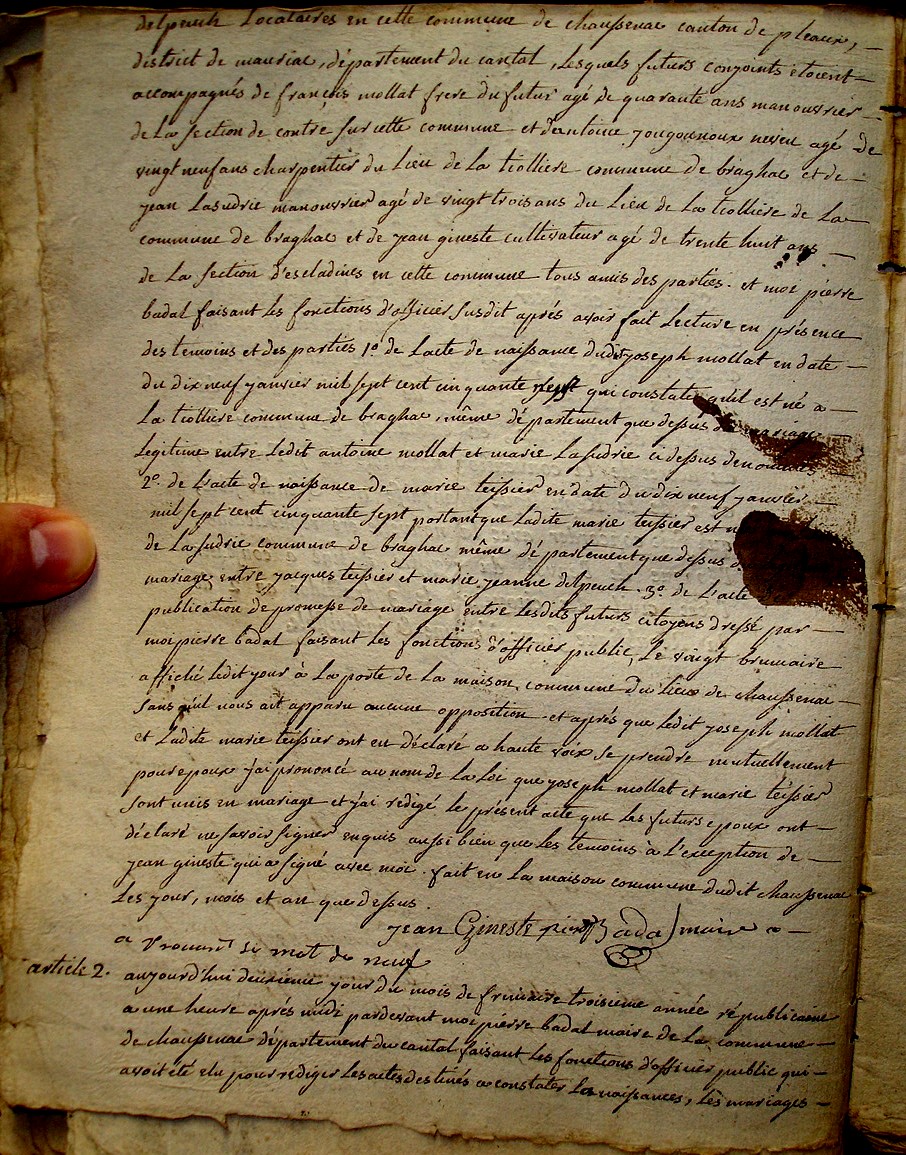 delpeuch Locataires en cette commune de chaussenac canton de pleaux,
district de mauriac, département du cantal, Lesquels futurs conjoints étoient
accompagnés de françois mollat frere du futur agé de quarante ans manouvrier
de La section de contre sur cette commune et d'antoine jougounoux neveu agé de
vingt neuf ans charpentier du Lieu de La tiolliere commune de braghac et de
jean Lasudrie manouvrier agé de vingt trois ans du Lieu de La tiolliere de La
commune de braghac et de jean gineste cultivateur agé de trente huit ans
de La section d'escladines en cette commune tous amis des parties. et moi pierre
badal faisant Les fonctions d'officier susdit aprés avoir fait Lecture en présence
des temoins et des parties 1º de Lacte de naissance dudit joseph mollat en date
du dix neuf janvier mil sept cent cinquante sept qui constate qu'il est né a
La tiolliere commune de braghac, même département que dessus du mariage
Legitime entre Ledit antoine mollat et marie Lasudrie ci dessus denommés
2º. de L'acte de naissance de marie teissier en date du dix neuf janvier
mil sept cent cinquante sept portant que Ladite marie teissier est
de La sudrie commune de braghac même département que dessus
mariage entre jacques teissier et marie jeanne delpeuch. 3º de L'acte
publication de promesse de mariage entre Lesdits futurs citoyens dressé par
moi pierre badal faisant Les fonctions d'officier public, Le vingt brumaire
affiché Ledit jour à La porte de La maison commune du Lieu de chaussenac
sans qu'il nous ait apparu aucune opposition et aprés que Ledit joseph mollat
et Ladite marie teissier ont eu déclaré a haute voix se prendre mutuellement
pour epoux j'ai prononcé au nom de La Loi que joseph mollat et marie teissier
sont unis en mariage et j'ai rédigé le présent acte que les futurs epoux ont
déclaré ne savoir signer enquis aussi bien que Les temoins à L'exception de
jean gineste qui a signé avec moi. fait en La maison commune dudit chaussenac
Les jour, mois et an que dessus.
jean Gineste Badal maire
a Le mot de neuf
article 2. aujourd'hui deuxieme jour du mois de frimaire troisieme année républicaine
a une heure aprés midi pardevant moi pierre badal maire de La commune
de chaussenac département du cantal faisant Les fonctions d'officier public qui
avoit été elu pour rediger Les actes destinés a constater Les naissances, Les mariages